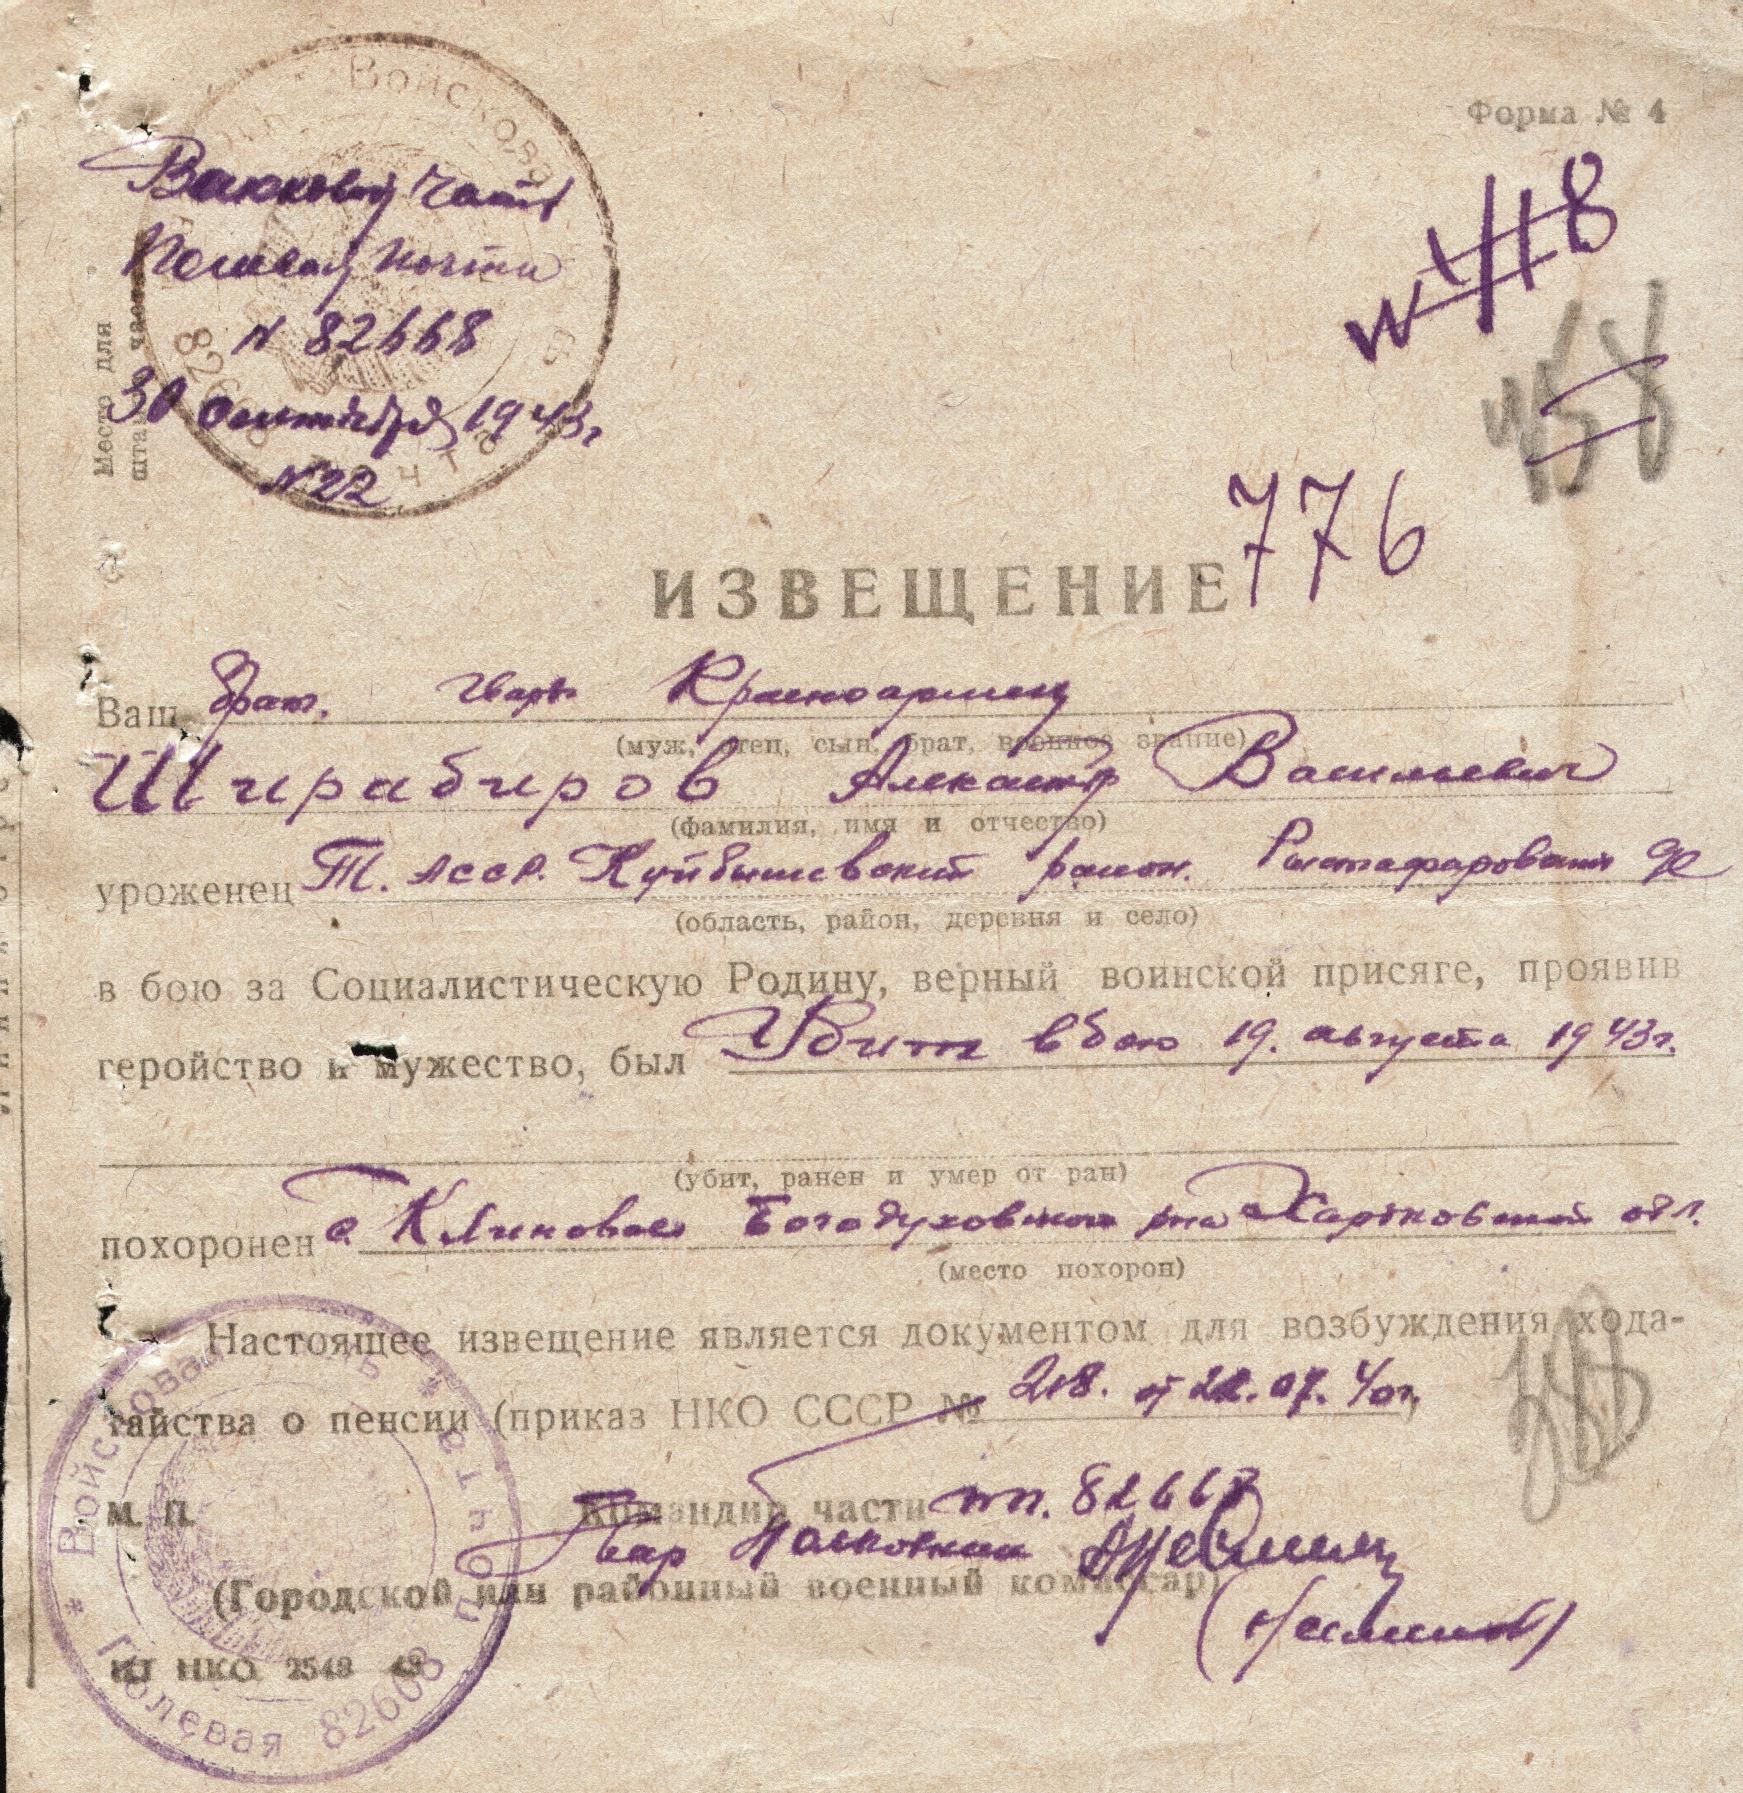 Форма № 4
Войсковая часть
Полевая почта
N 82668
30 сентября 1943г
N 22
Место для
штампа части
N 118
N 58
776
ИЗВЕЩЕНИЕ
Ваш брат. гвард Красноармеец
(муж, отец, сын, брат, военное звание)
Ширабиров Александр Васильевич
(фамилия, имя и отчество)
уроженец Т. АССР. Куйбышевский район.
(область, район, деревня и село)
в бою за Социалистическую Родину, верный воинской присяге, проявив
геройство и мужество, был Убит в бою 19. августа 1943г.
(убит, ранен и умер от ран)
похоронен с. Климовое Богодуховского р-на Харьковской обл.
(место похорон)
Настоящее извещение является документом для возбуждения хода-
тайства о пенсии (приказ НКО СССР № 218. от 22.07.40г.)
М. П. Командир части пп. 82668
Гвар Полковник
(Городской или районный военный комиссар)
ИЛ НКО 2548 43
Войсковая часть * Полевая почта * 82668